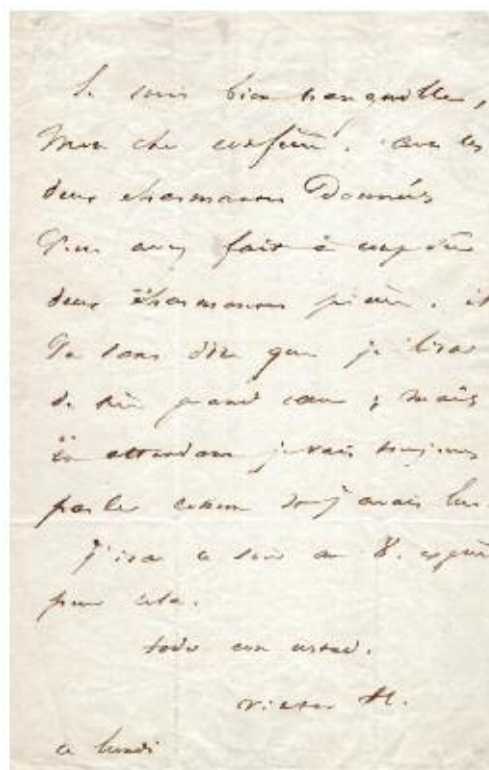 Je suis bien tranquille,
Mon cher confrère. avec les
deux charmantes Données
Vous avez fait à coup sûr
deux charmantes pièces. il
Va sans dire que je lirai
de très grand cœur ; mais
En attendant je vais toujours
parler comme si j'avais lu.
J'irai ce soir au exprès
pour cela.
todo con usted.
Victor H.
ce lundi